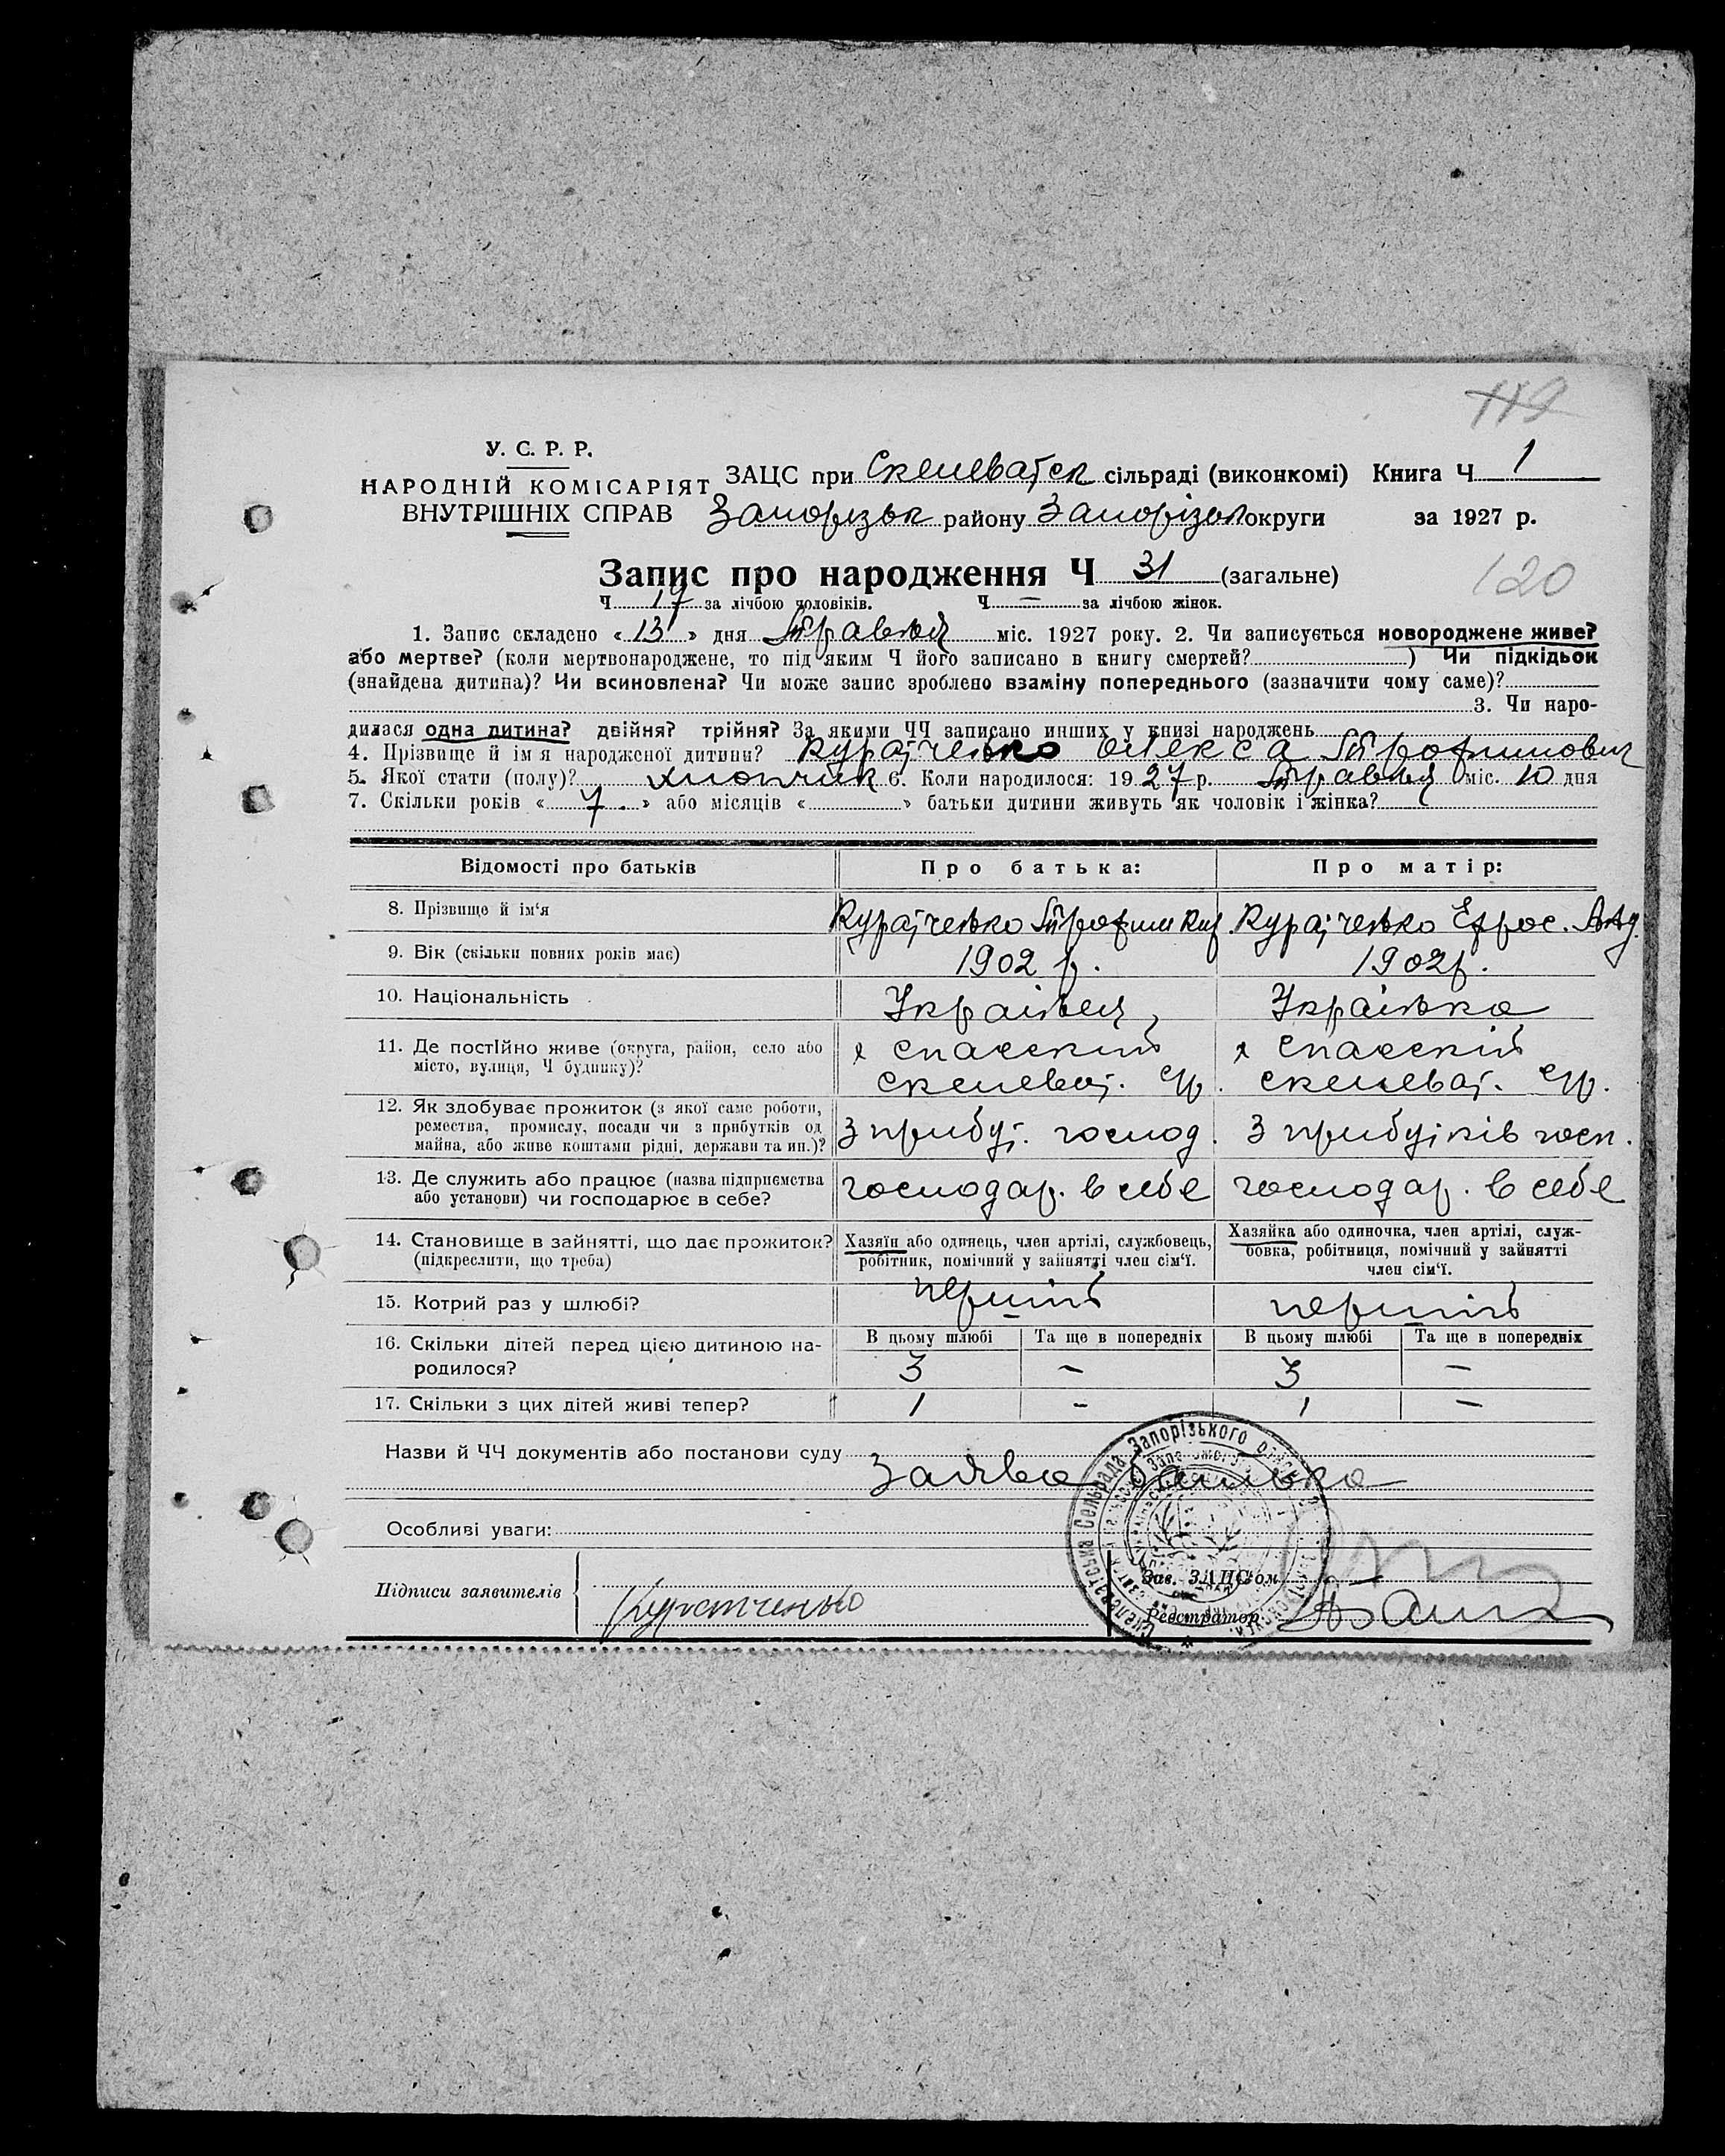 119
У. С. Р. Р.
НАРОДНІЙ КОМІСАРІЯТ
ВНУТРІШНІХ СПРАВ
ЗАЦС при Скелеватск сільраді (виконкомі) Книга Ч 1
Запорізьк району Запорізьк округи за 1927 р.
Запис про народження Ч 31 (загальне)
120
Ч 17 за лічбою чоловіків. Ч — за лічбою жінок.
1. Запис складено « 13 » дня Травня міс. 1927 року. 2. Чи записується новороджене живе?
або мертве? (коли мертвонароджене, то під яким Ч його записано в книгу смертей? ) Чи підкідьок
(знайдена дитина)? Чи всиновлена? Чи може запис зроблено взаміну попереднього (зазначити чому саме)?
3. Чи наро-
дилася одна дитина? двійня? трійня? За якими ЧЧ записано инших у книзі народжень
4. Прізвище й ім'я народженої дитини? Куратченко Олекса Трофимович
5. Якої стати (полу)? хлопчик 6. Коли народилося: 1927 р. Травня міс. 10 дня
7. Скільки років « 7 » або місяців « » батьки дитини живуть як чоловік і жінка?
Відомості про батьків Про батька: Про матір:
8. Прізвище й ім'я Куратченко Трофим Кир. Куратченко Ефрос. Анд.
9. Вік (скільки повних років має) 1902 р. 1902 р.
10. Національність Українець Українка
11. Де постійно живе (округа, район, село або х Спаський х Спаский
місто, вулиця, Ч будинку)? Скелеват. с/р. Скелеват. с/р.
12. Як здобуває прожиток (з якої саме роботи,
ремества, промислу, посади чи з прибутків од З прибут. господ. З прибутків госп.
майна, або живе коштами рідні, держави та ин.)?
13. Де служить або працює (назва підприємства господар. в себе господар. в себе
або установи) чи господарює в себе?
14. Становище в зайнятті, що дає прожиток? Хазяїн або одинець, член артілі, службовець, Хазяйка або одиночка, член артілі, служ-
(підкреслити, що треба) робітник, помічний у зайнятті член сім'ї. бовка, робітниця, помічний у зайнятті
член сім'ї.
15. Котрий раз у шлюбі? перший перший
16. Скільки дітей перед цією дитиною на- В цьому шлюбі Та ще в попередніх В цьому шлюбі Та ще в попередніх
родилося? 3 – 3 –
17. Скільки з цих дітей живі тепер? 1 – 1 –
Назви й ЧЧ документів або постанови суду
Заява батька
Особливі уваги:
Підписи заявителів Куратченко
Зав. ЗАЦС'ом
Реєстратор
Скелеватська Сельрада Запорізького